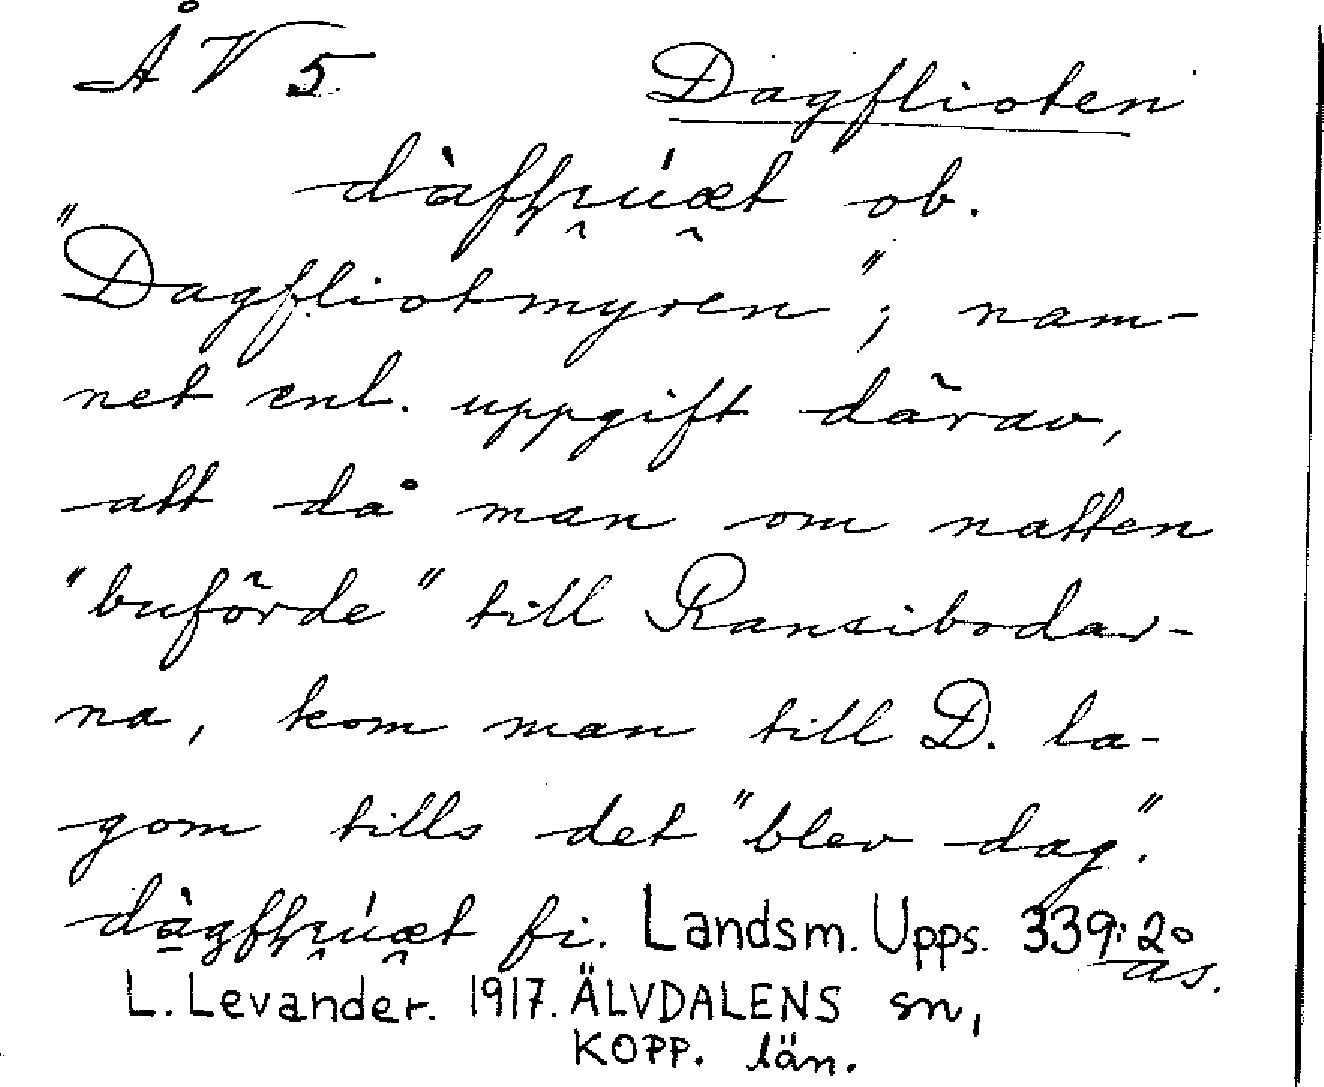 ÅV5 Dagflioten
ob.
"Dagfliotmyren"; nam-
net enl. uppgift därav,
att då man om natten
"buförde" till Ransibodar-
na, kom man till D. la-
gom tills det "blev dag".
fi. Landsm. Upps. 339:20
as.
L. Levander. 1917. ÄLVDALENS sn,
KOPP. län.